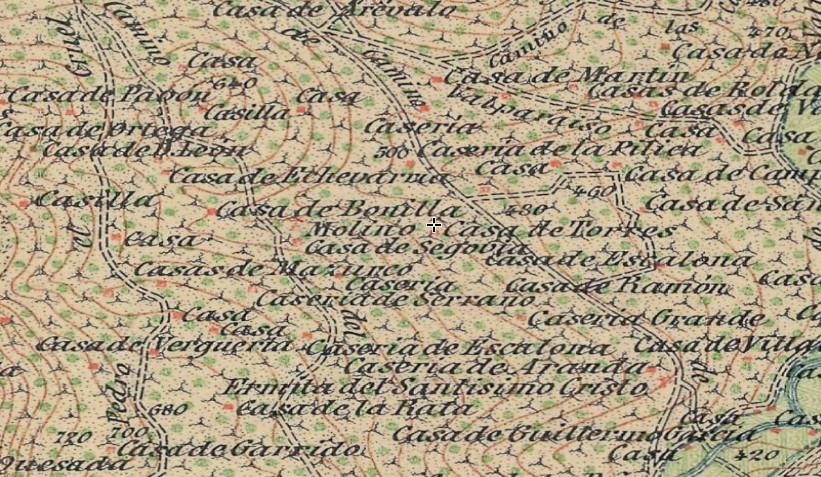 Casa de Arévalo
de
las
480
470
Cruel
Camino
Camino
de
Casa
Camino
Casa de Martin
640
Casa de Pavón
Casa
Valparaiso
Casas de Rolda
Casilla
Casas de V
Casa de Ortega
Casería
Casa
Casa
Casa de D. León
500
Casería de la Pilica
Casa de Echevarria
Casa
Casa de Cam
460
Casilla
Casa de Bonilla
480
Casa de San
Molino
Casa de Torres
el
Casa
Casa de Segovia
Casa de Escalona
Casas de Mazurco
Casería
Casa de Ramón
Casa
Casería de Serrano
Casa
Casería Grande
Casa
del
Casa de Verguería
Casería de Escalona
Casa de Villa
Casería de Aranda
de
Ermita del Santísimo Cristo
Pedro
680
Casa de la Rata
Casa
Cas
720
700
Casa de Guillermo García
Casa de Garrido
Casa
420
Quesada